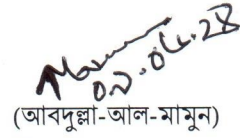 ০৯.০৫.২৪
(আবদুল্লা-আল-মামুন)